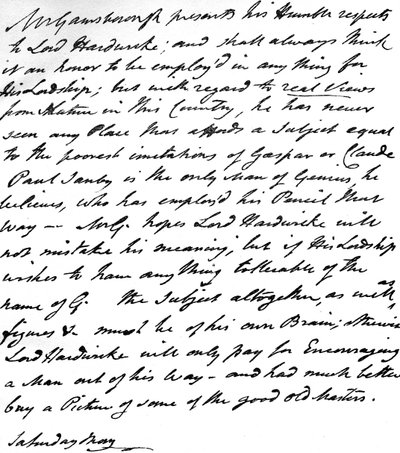 Mr Gainsborough presents his Humble respects
to Lord Hardwicke; and shall always think
it an honor to be employ'd in any thing for
His Lordship; but with regard to real Views
from Nature in this Country, he has never
seen any Place that affords a Subject equal
to the poorest imitations of Gaspar or Claude
Paul Sanby is the only Man of Genius, he
believes, who has employ'd his Pencil that
way — Mr G. hopes Lord Hardwicke will
not mistake his meaning, but if His Lordship
wishes to have any thing tollerable of the
name of G. the Subject altogether, as well as
figures &c must be of his own Brain; otherwise
Lord Hardwicke will only pay for Encouraging
a Man out of his way — and had much better
buy a Picture of some of the good old Masters.
Saturday Morg